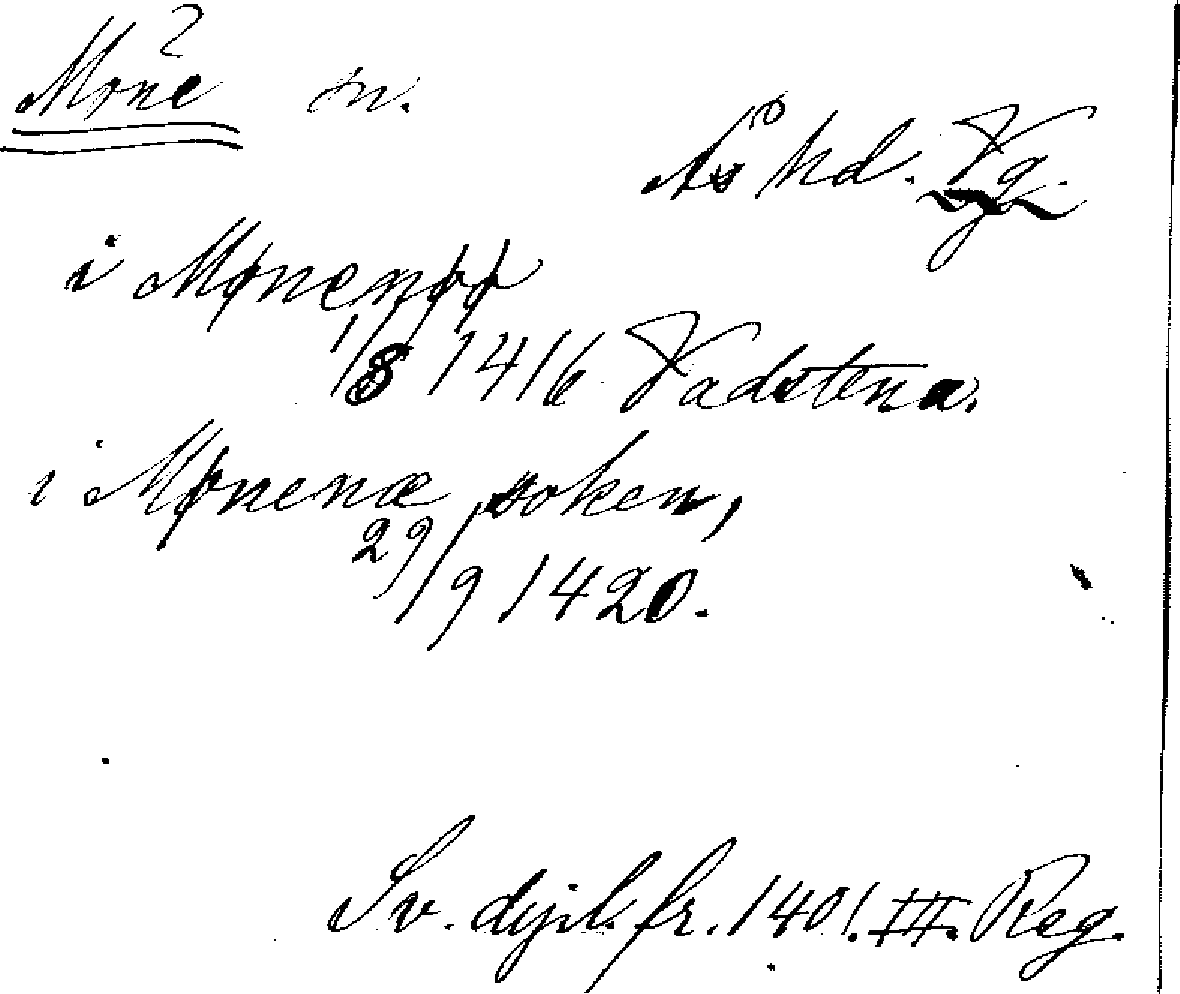 2
Mone sn.
Ås hd. Vg.
i Mønenøø
1/8 1416 Vadstena.
i Mønenæ soken,
29/9 1420.
Sv. dipl. fr. 1401. III. Reg.